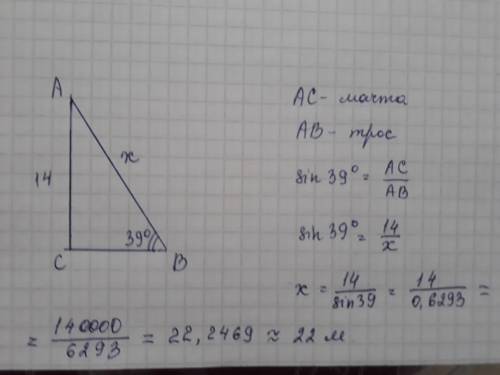 A
x
14
39°
C
B
AC - мачта
AB - трос
sin 39° = AC/AB
sin 39° = 14/x
x = 14/sin39 = 14/0,6293 =
= 140000/6293 = 22,2469 ≈ 22 м